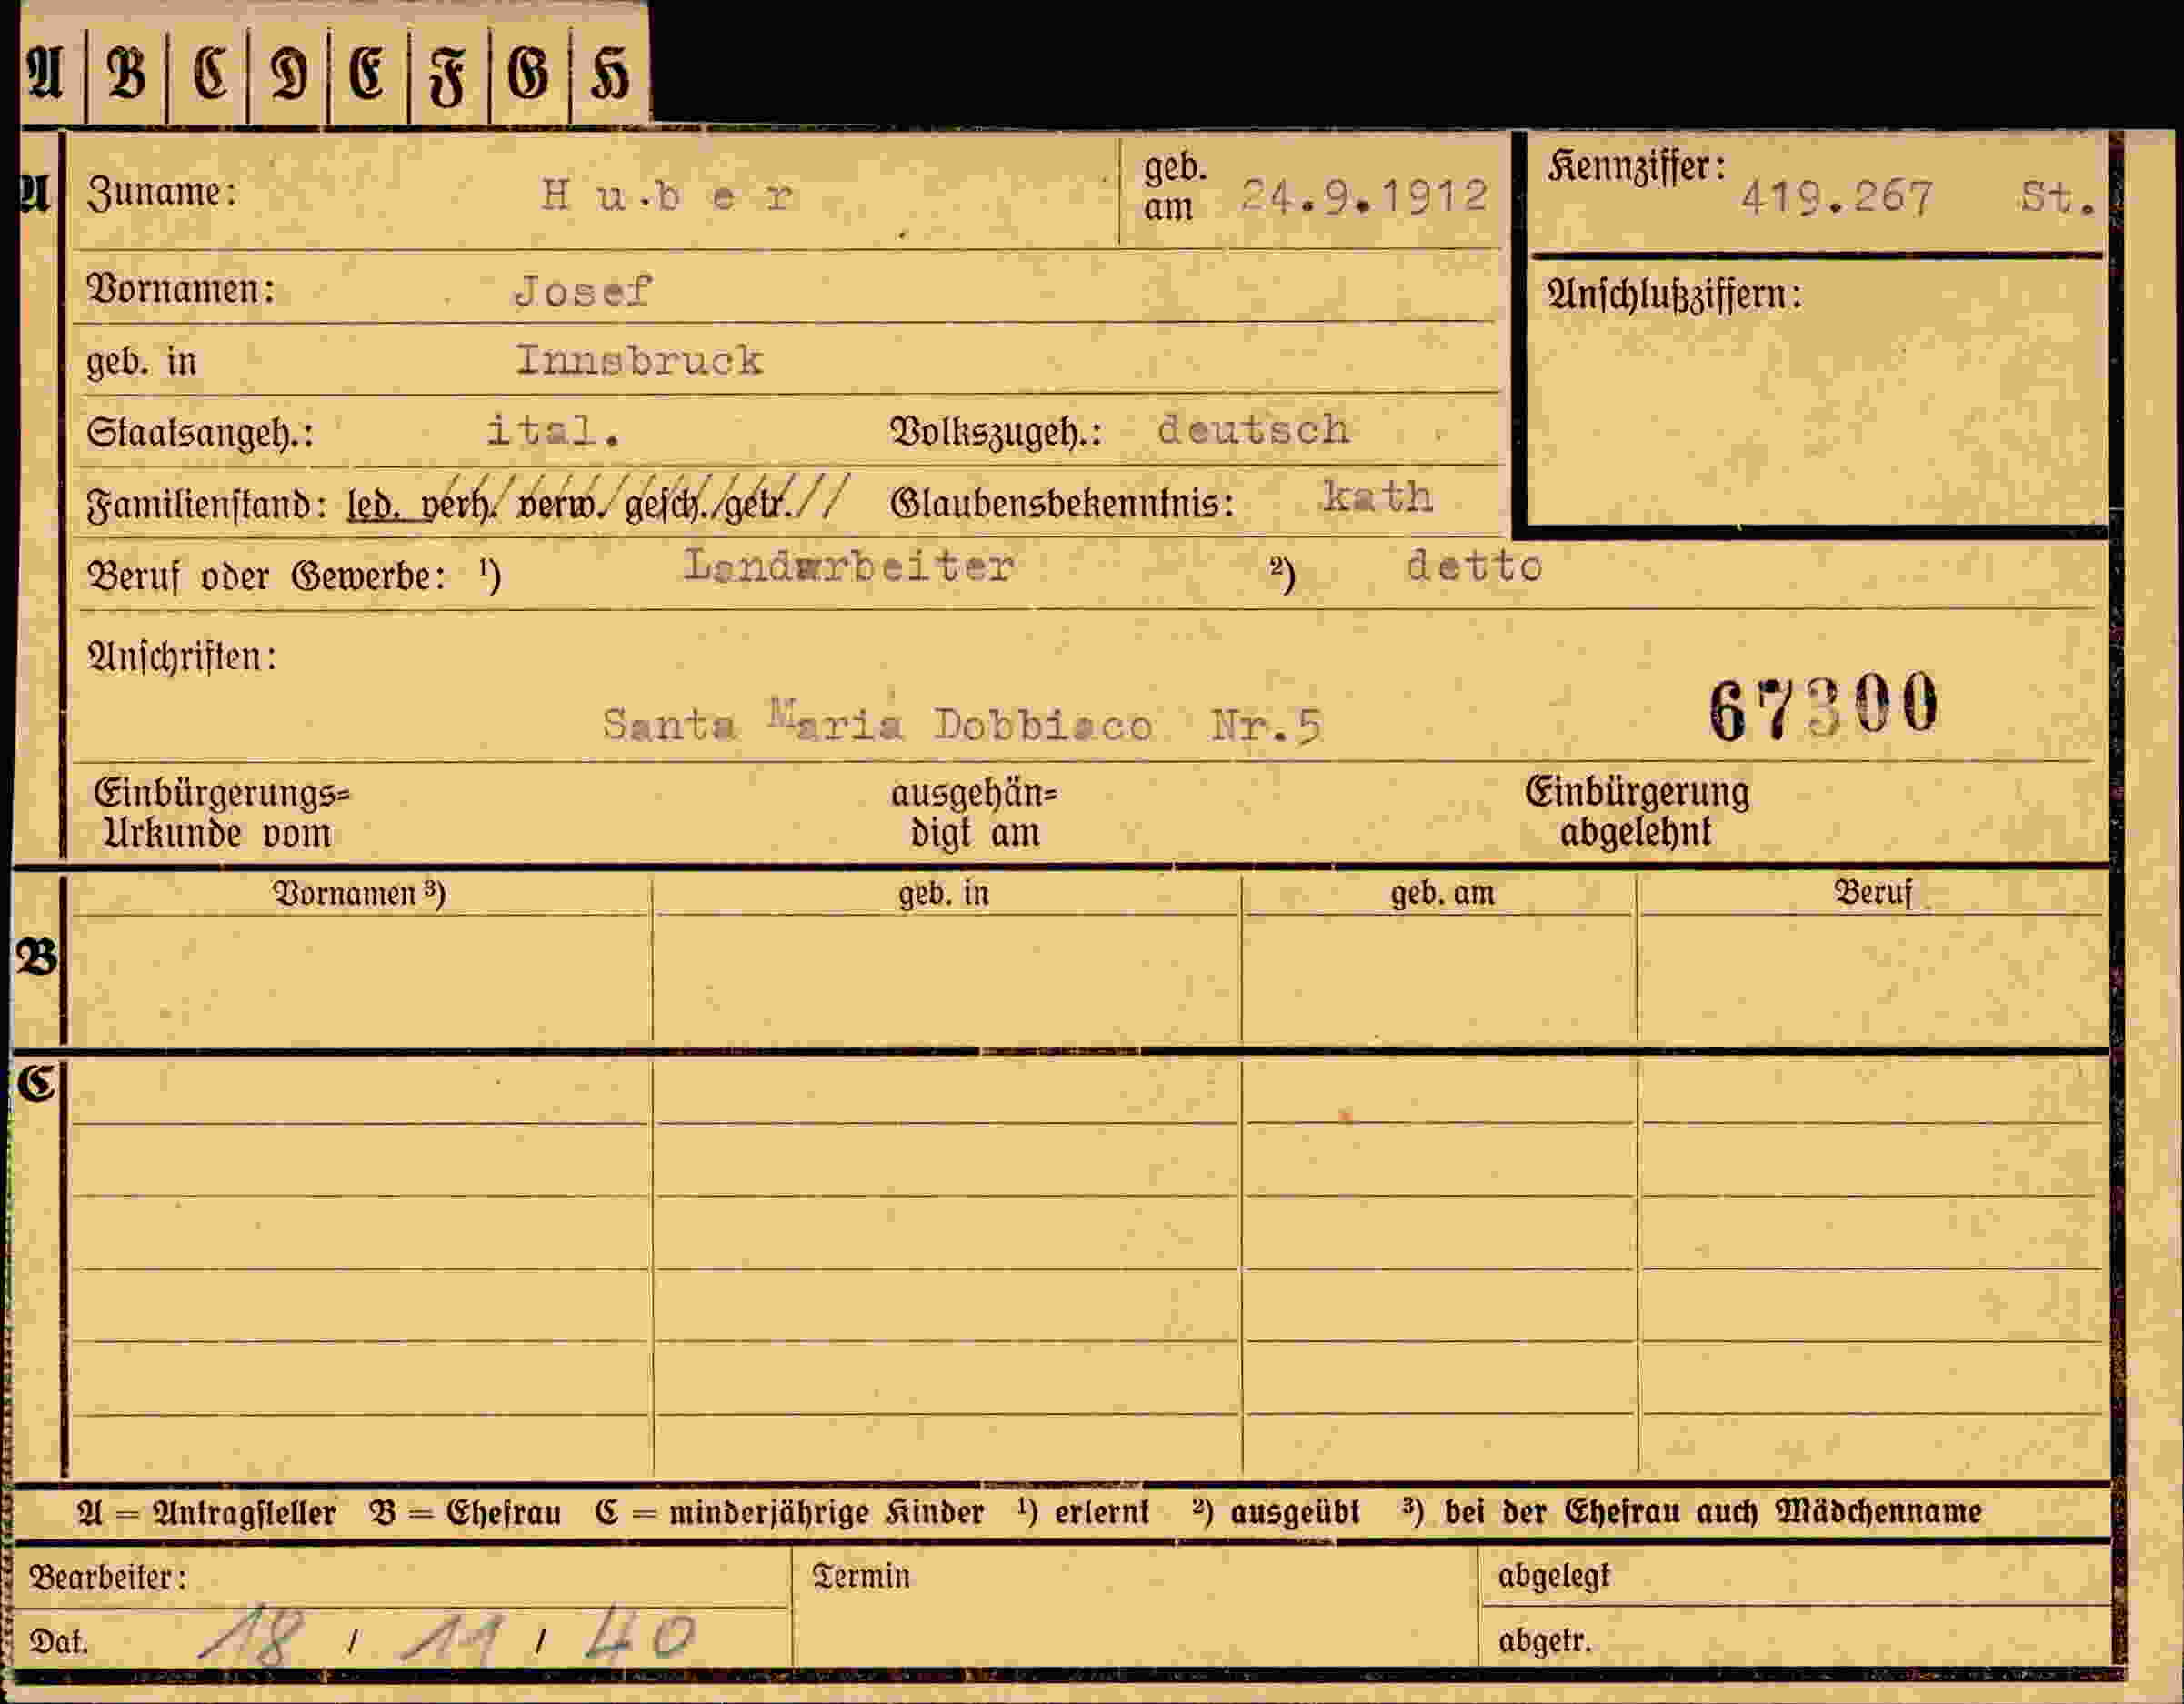 A B C D E F G H
A Zuname: H u.b e r geb. am 24.9.1912 Kennziffer: 419.267 St.
Vornamen: Josef Anschlußziffern:
geb. in Innsbruck
Staatsangeh.: ital. Volkszugeh.: deutsch
Familienstand: led. verh. verw. gesch. getr. Glaubensbekenntnis: kath
Beruf oder Gewerbe: ¹) Landarbeiter ²) detto
Anschriften:
67300
Santa Maria Dobbiaco Nr.5
Einbürgerungs= ausgehän= Einbürgerung
Urkunde vom digt am abgelehnt
Vornamen ³) geb. in geb. am Beruf
B
C
A = Antragsteller B = Ehefrau C = minderjährige Kinder ¹) erlernt ²) ausgeübt ³) bei der Ehefrau auch Mädchenname
Bearbeiter: Termin abgelegt
Dat. 18 / 11 / 40 abgetr.